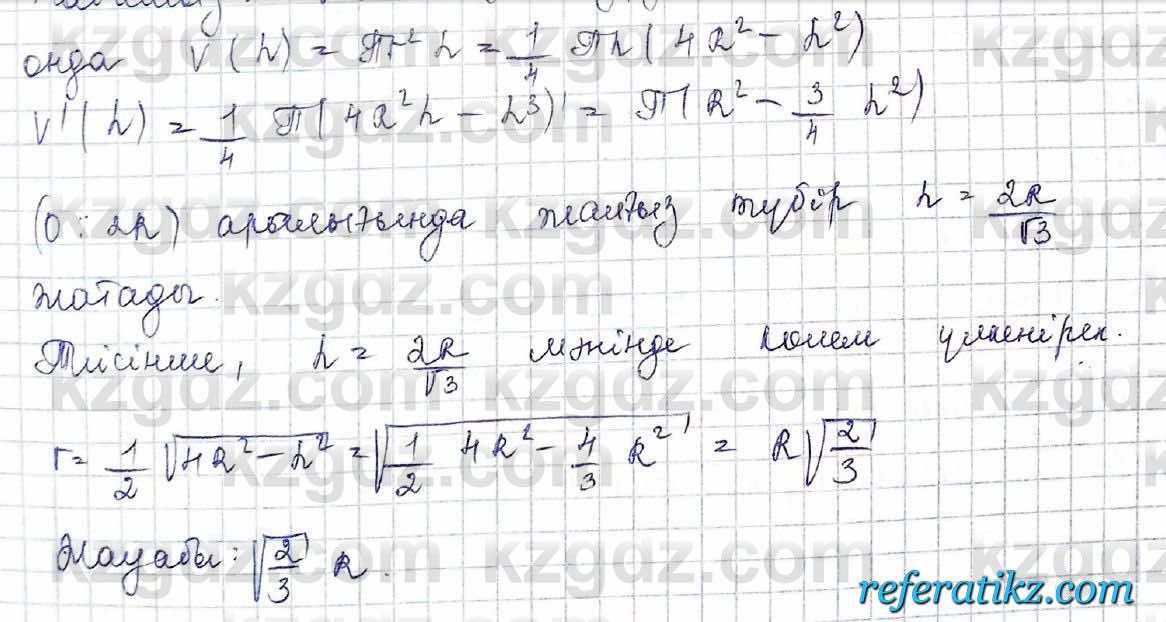 онда V(h) = πr² h = 1/4 πh(4R² - h²)
V'(h) = 1/4 π(4R²h - h³)' = π(R² - 3/4 h²)
(0; 2R) аралығында жалғыз түбір h = 2R/√3
жатады.
Тиісінше, h = 2R/√3 мәнінде көлем үлкенірек.
r = 1/2 √(4R² - h²) = √(1/2 4R² - 4/3 R²) = R√(2/3)
Жауабы: √(2/3) R.
kzgdz.com
referatikz.com